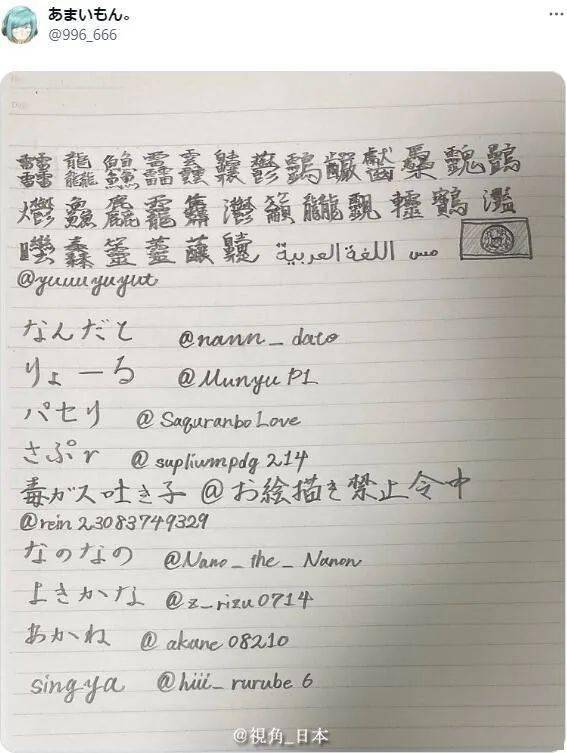 あまいもん。
@996_666
䨻 龘 䲜 靐 鬱
爩 鱻 麤 龗 灪 籲 灩
مس اللغة العربية
@yuuuyuyut
なんだと @nann_dato
りょーる @MunyuP1
パセリ @SaquranboLove
さぷr @supliumpdg214
毒ガス吐き子@お絵描き禁止令中
@rein23083749329
なのなの @Nano_the_Nanon
よきかな @z_rizu0714
あかね @akane08210
singya @hiii_rurube6
@視角_日本